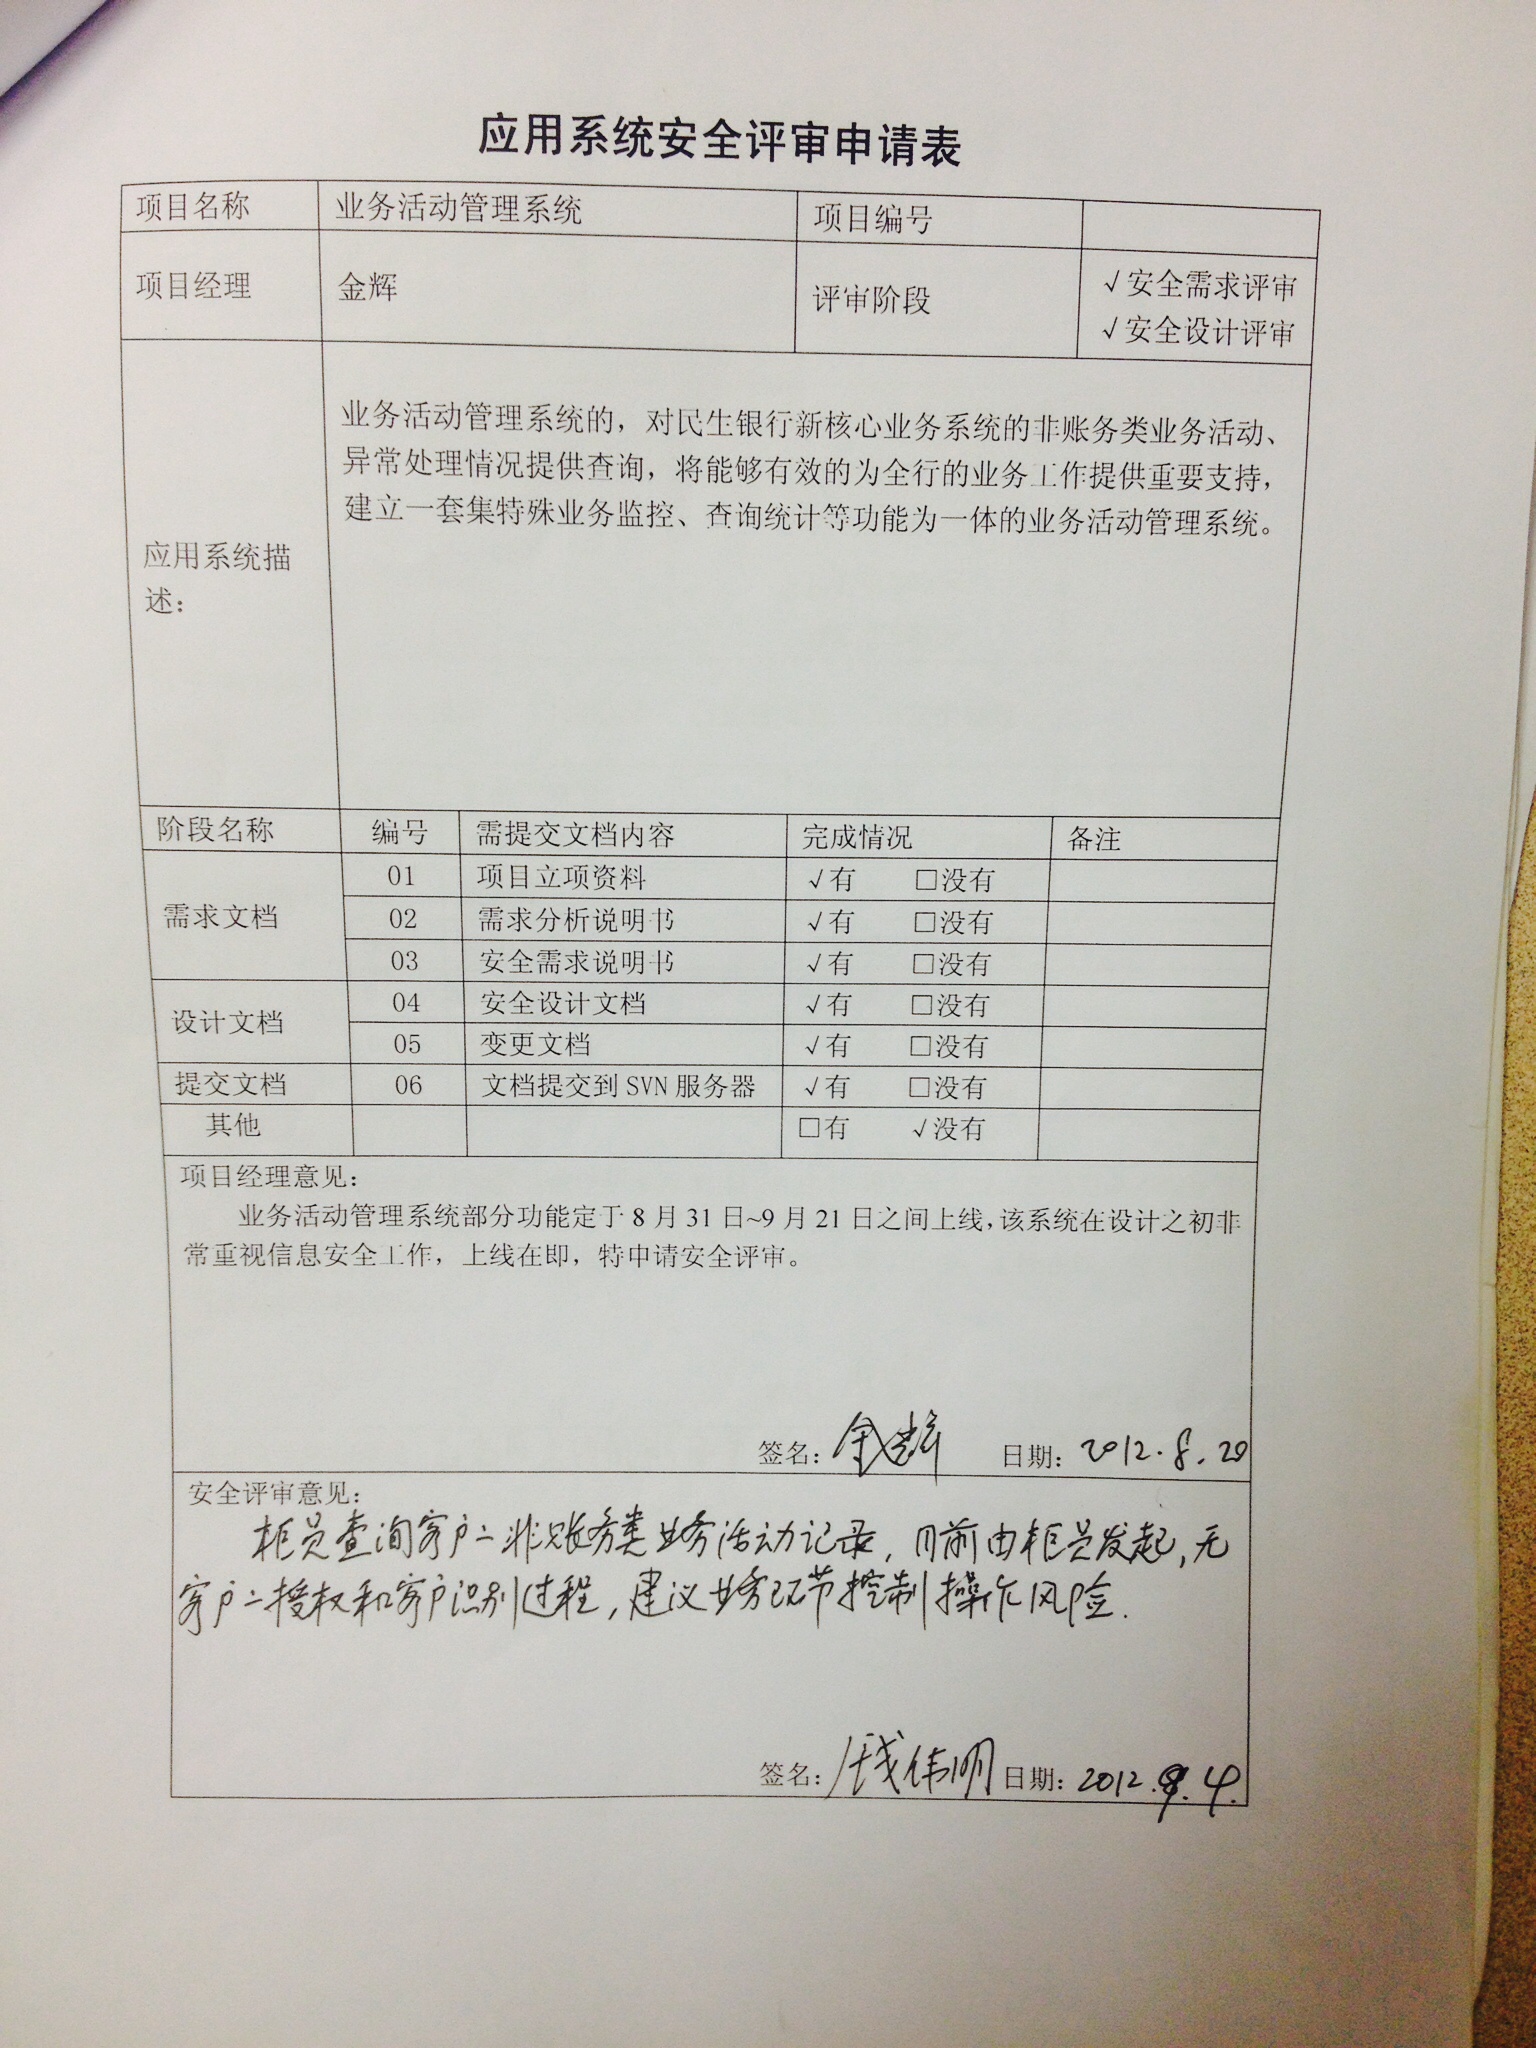 应用系统安全评审申请表
项目名称 业务活动管理系统 项目编号
项目经理 金辉 评审阶段 √安全需求评审
√安全设计评审
应用系统描
述：
业务活动管理系统的，对民生银行新核心业务系统的非账务类业务活动、
异常处理情况提供查询，将能够有效的为全行的业务工作提供重要支持，
建立一套集特殊业务监控、查询统计等功能为一体的业务活动管理系统。
阶段名称 编号 需提交文档内容 完成情况 备注
需求文档
01 项目立项资料 √有 □没有
02 需求分析说明书 √有 □没有
03 安全需求说明书 √有 □没有
设计文档
04 安全设计文档 √有 □没有
05 变更文档 √有 □没有
提交文档 06 文档提交到 SVN 服务器 √有 □没有
其他 □有 √没有
项目经理意见：
业务活动管理系统部分功能定于 8 月 31 日~9 月 21 日之间上线，该系统在设计之初非
常重视信息安全工作，上线在即，特申请安全评审。
签名：金辉 日期：2012.8.20
安全评审意见：
柜员查询客户之非账务类业务活动记录，目前由柜员发起，无
客户之授权和客户识别过程，建议业务环节控制操作风险.
签名： 伟明 日期：2012.9.4.